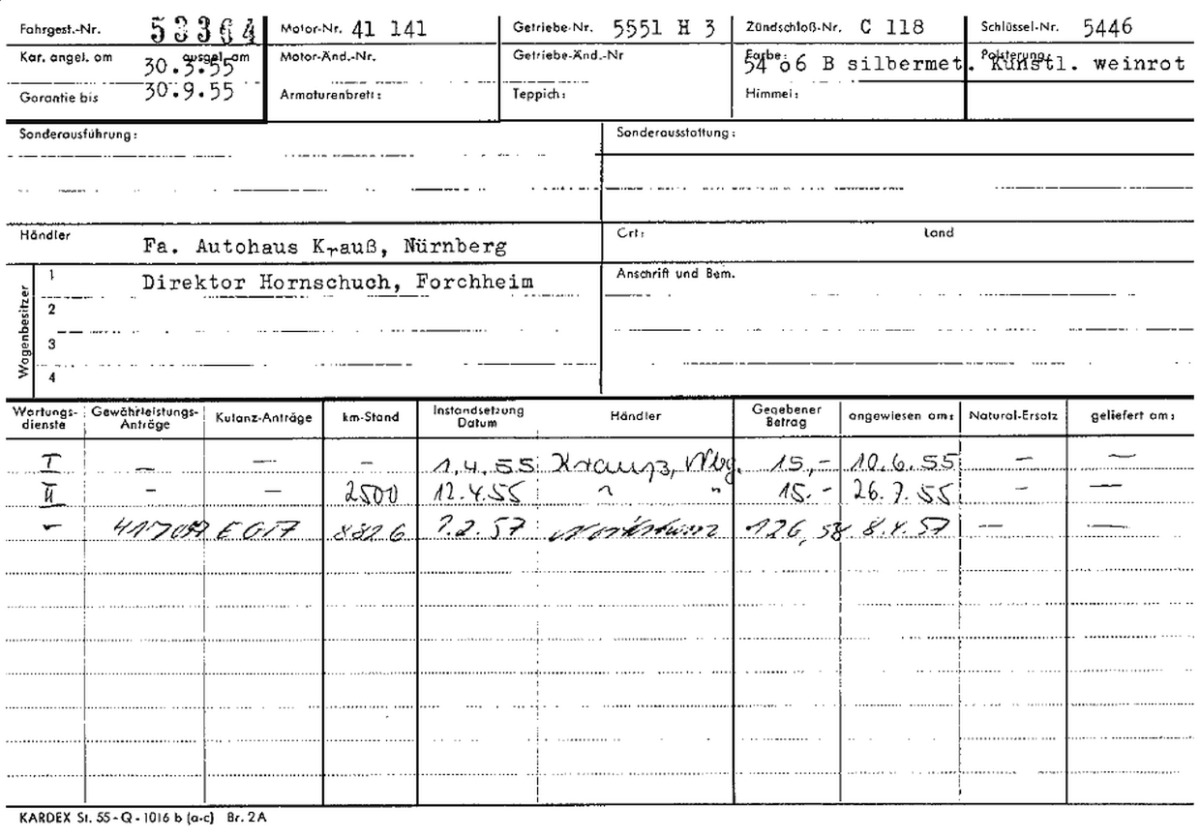 Fahrgest.-Nr. 53364 Motor-Nr. 41 141 Getriebe-Nr. 5551 H 3 Zündschloß-Nr. C 118 Schlüssel-Nr. 5446
Kar. angel. am ausgel. am 30.3.55 Motor-Änd.-Nr. Getriebe-Änd.-Nr Farbe: 54 06 B silbermet. Polsterung: Kunstl. weinrot
Garantie bis 30.9.55 Armaturenbrett: Teppich: Himmel:
Sonderausführung: Sonderausstattung:
Händler Fa. Autohaus Krauß, Nürnberg Ort: Land
Wagenbesitzer
1 Direktor Hornschuch, Forchheim Anschrift und Bem.
2
3
4
Wartungsdienste Gewährleistungs-Anträge Kulanz-Anträge km-Stand Instandsetzung Datum Händler Gegebener Betrag angewiesen am: Natural-Ersatz geliefert am:
I — — – 1.4.55 Krauß, Nbg. 15,- 10.6.55 — —
II – — 2500 12.4.55 " " 15.- 26.7.55 – —
– E 017 8826 7.2.57 126,58 8.4.57 — —
KARDEX St. 55-Q-1016 b (a-c) Br. 2A